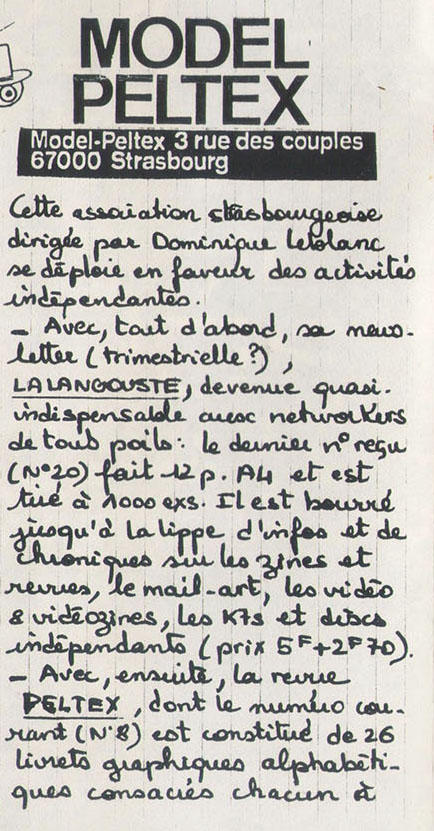 MODEL
PELTEX
Model-Peltex 3 rue des couples
67000 Strasbourg
Cette association strasbourgeoise
dirigée par Dominique Leblanc
se déploie en faveur des activités
indépendantes.
- Avec, tout d'abord, sa news-
letter (trimestrielle?),
LALANGOUSTE, devenue quasi-
indispensable aux networkers
de tous poils: le dernier n° reçu
(N°20) fait 12 p. A4 et est
tiré à 1000 exs. Il est bourré
jusqu'à la lippe d'infos et de
chroniques sur les zines et
revues, le mail-art, les vidéo
& vidéozines, les K7s et discs
indépendants (prix 5F+2F70).
- Avec, ensuite, la revue
PELTEX, dont le numéro cou-
rant (N°8) est constitué de 26
livrets graphiques alphabéti-
ques consacrés chacun à